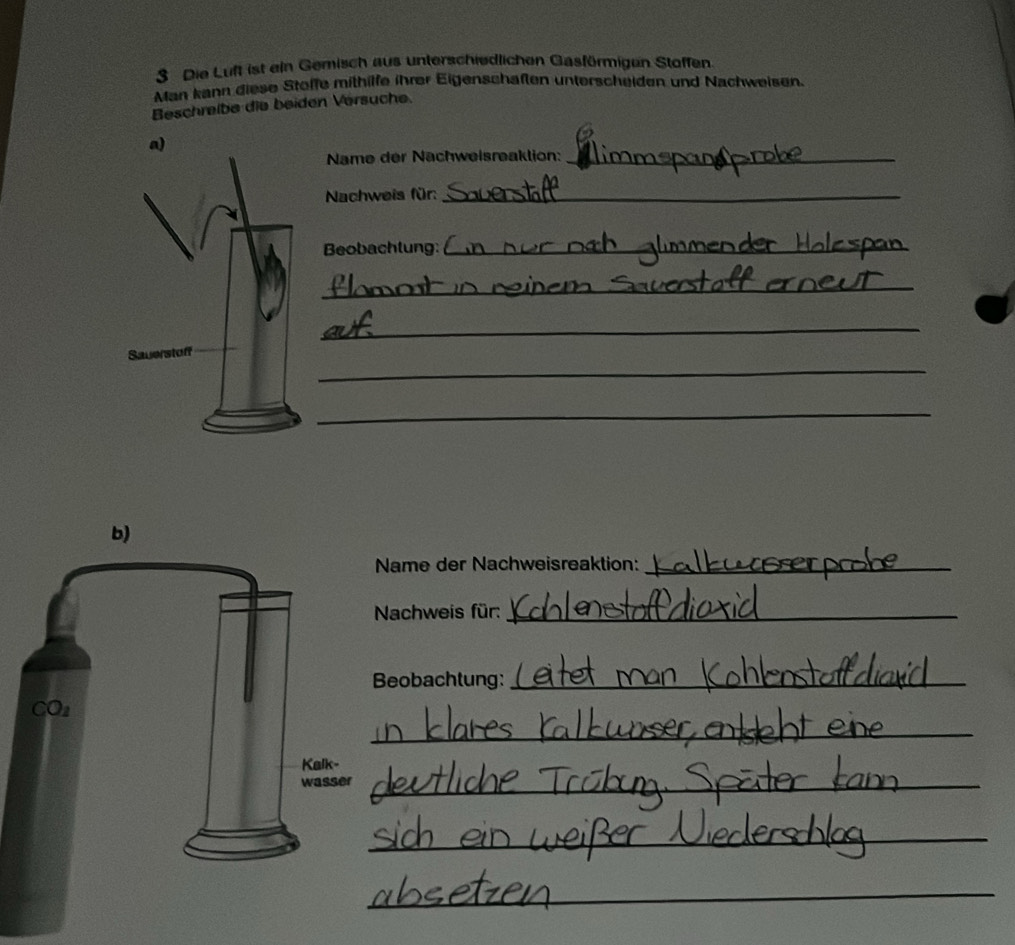 3 Die Luft ist ein Gemisch aus unterschiedlichen Gasförmigen Stoffen.
Man kann diese Stoffe mithilfe ihrer Eigenschaften unterscheiden und Nachweisen.
Beschreibe die beiden Versuche.
a)
Name der Nachweisreaktion: Glimmspanprobe
Nachweis für: Sauerstoff
Beobachtung: Ein nur noch glimmender Holzspan
flammt in reinem Sauerstoff erneut
auf.
Sauerstoff
b)
Name der Nachweisreaktion: Kalkwasserprobe
Nachweis für: Kohlenstoffdioxid
Beobachtung: Leitet man Kohlenstoffdioxid
in klares Kalkwasser, entsteht eine
deutliche Trübung. Später kann
sich ein weißer Niederschlag
absetzen
CO₂
Kalk-
wasser